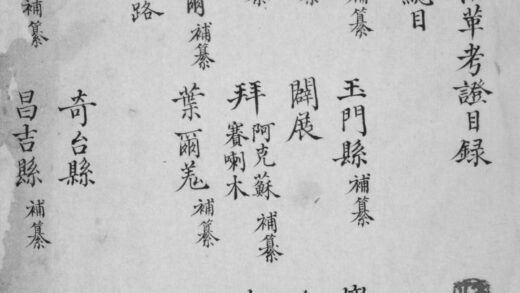 革考證目録
目
纂 玉門縣 補纂
闢展
纂 拜 阿克蘇 補纂
賽喇木
爾 補纂 葉爾羗 補纂
路 奇台縣
補纂 昌吉縣 補纂